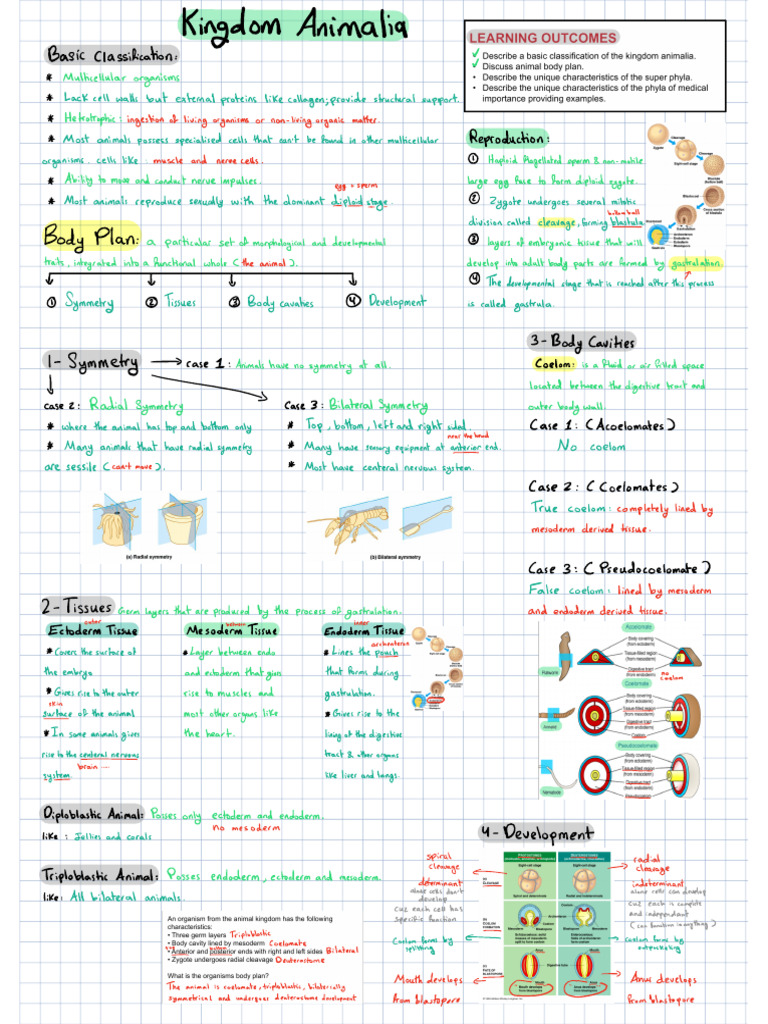 Kingdom Animalia
LEARNING OUTCOMES
✓ Describe a basic classification of the kingdom animalia.
✓ Discuss animal body plan.
• Describe the unique characteristics of the super phyla.
• Describe the unique characteristics of the phyla of medical
importance providing examples.
Basic Classification:
* Multicellular organisms
* Lack cell walls but external proteins like collagen; provide structural support.
* Hetrotrophic: ingestion of living organisms or non-living organic matter.
* Most animals possess specialised cells that can't be found in other multicellular
organisms. cells like: muscle and nerve cells.
* Ability to move and conduct nerve impulses.
egg + sperm
* Most animals reproduce sexually with the dominant diploid stage.
Reproduction:
① Haploid flagellated sperm & non-motile
large egg fuse to form diploid zygote.
② Zygote undergoes several mitotic
division called cleavage, forming blastula.
③ layers of embryonic tissue that will
develop into adult body parts are formed by gastrulation.
④ The developmental stage that is reached after this process
is called gastrula.
Zygote
Cleavage
Eight-cell stage
Cleavage
Blastula
Blastocoel
Cross section
of blastula
Gastrulation
Body Plan: a particular set of morphological and developmental
traits, integrated into a functional whole (the animal).
① Symmetry ② Tissues ③ Body cavaties ④ Development
1- Symmetry → case 1: Animals have no symmetry at all.
case 2: Radial Symmetry
* where the animal has top and bottom only
* Many animals that have radial symmetry
are sessile (can't move).
Case 3: Bilateral Symmetry
* Top, bottom, left and right sided.
near the head
* Many have sensory equipment at anterior end.
* Most have centeral nervous system.
(a) Radial symmetry
(b) Bilateral symmetry
3- Body Cavities
Coelom: is a fluid or air filled space
located between the digestive tract and
outer body wall.
Case 1: (Acoelomates)
No coelom
Case 2: (Coelomates)
True coelom: completely lined by
mesoderm derived tissue.
Case 3: (Pseudocoelomate)
False coelom: lined by mesoderm
and endoderm derived tissue.
2- Tissues Germ layers that are produced by the process of gastrulation.
outer
Ectoderm Tissue
* Covers the surface of
the embryo.
* Gives rise to the outer
skin
surface of the animal
* In some animals gives
rise to the centeral nervous
brain
system.
between
Mesoderm Tissue
* Layer between endo
and ectoderm that give
rise to muscles and
most other organs like
the heart.
inner
Endoderm Tissue
archenteron
* Lines the pouch
that forms during
gastrulation.
* Gives rise to the
lining of the digestive
tract & other organs
like liver and lungs.
Acoelomate
Body covering
(from ectoderm)
Tissue-filled region
(from mesoderm)
Digestive tract
(from endoderm)
no
coelom
Flatworm
Coelomate
Body covering
(from ectoderm)
Tissue-filled region
(from mesoderm)
Digestive tract
(from endoderm)
Coelom
Annelid
Pseudocoelomate
Body covering
(from ectoderm)
Tissue-filled region
(from mesoderm)
Digestive tract
(from endoderm)
Pseudocoelom
Nematode
Diploblastic Animal: Posses only ectoderm and endoderm.
no mesoderm
like: Jellies and corals
Triploblastic Animal: Posses endoderm, ectoderm and mesoderm.
like: All bilateral animals.
An organism from the animal kingdom has the following
characteristics:
• Three germ layers Triploblastic
• Body cavity lined by mesoderm Coelomate
• Anterior and posterior ends with right and left sides Bilateral
• Zygote undergoes radial cleavage Deuterostome
What is the organisms body plan?
The animal is coelomate, triploblastic, bilaterally
symmetrical and undergoes deuterostome development
4- Development
spiral
cleavage
determinant
develop
cuz each cell has
specific function
Coelom forms by
splitting
Mouth develops
from blastopore
Eight-cell stage
Eight-cell stage
Spiral and determinate
Radial and indeterminate
Digestive tube
Mouth
Anus
radial
cleavage
indeterminant
alone cells can develop
cuz each is complete
and independant
(can function in anything)
coelom forms by
Anus develops
from blastopore